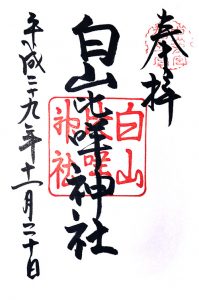 奉拝
白山比咩神社
白山
比咩
神社
平成二十九年十一月二十日